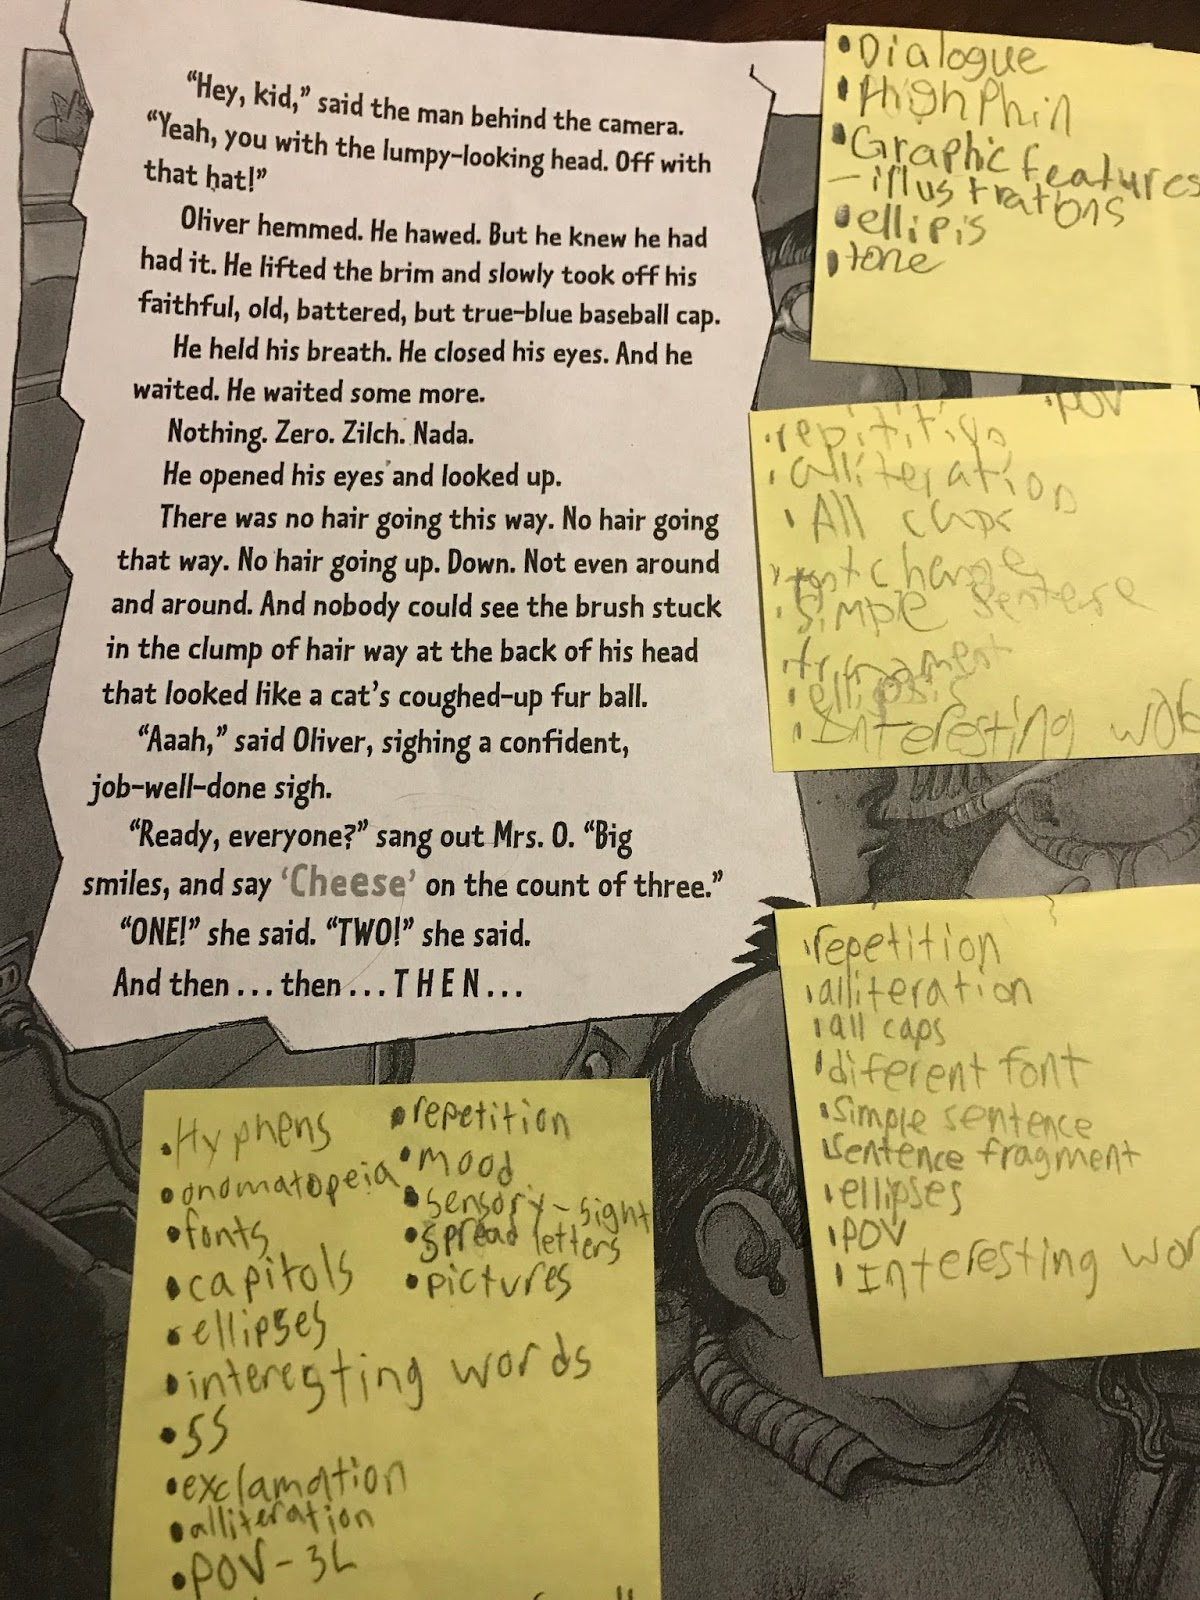 “Hey, kid,” said the man behind the camera.
“Yeah, you with the lumpy-looking head. Off with
that hat!”
Oliver hemmed. He hawed. But he knew he had
had it. He lifted the brim and slowly took off his
faithful, old, battered, but true-blue baseball cap.
He held his breath. He closed his eyes. And he
waited. He waited some more.
Nothing. Zero. Zilch. Nada.
He opened his eyes and looked up.
There was no hair going this way. No hair going
that way. No hair going up. Down. Not even around
and around. And nobody could see the brush stuck
in the clump of hair way at the back of his head
that looked like a cat’s coughed-up fur ball.
“Aaah,” said Oliver, sighing a confident,
job-well-done sigh.
“Ready, everyone?” sang out Mrs. O. “Big
smiles, and say ‘Cheese’ on the count of three.”
“ONE!” she said. “TWO!” she said.
And then . . . then . . . T H E N . . .
• Dialogue
• Graphic features
– illustrations
• ellipis
• tone
• POV
• alliteration
• All caps
• simple
• Interesting
• repetition
• alliteration
• all caps
• diferent font
• simple sentence
sentence fragment
• ellipses
• POV
• Interesting wor
• Hyphens
• onomatopeia
• fonts
• capitols
• ellipses
• interesting words
• SS
• exclamation
• alliteration
• POV – 3L
• repetition
• mood
• sensory – sight
• spread letters
• pictures